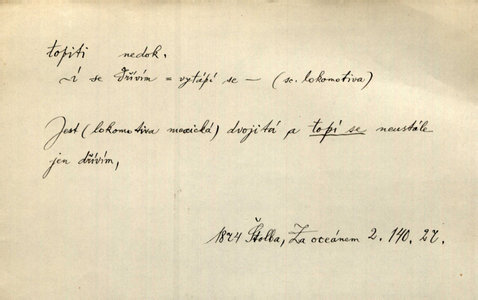 topiti nedok.
-í se dřívím = vytápí se — (sc. lokomotiva)
Jest (lokomotiva mexická) dvojitá a topí se neustále
jen dřívím,
1874 Štolba, Za oceánem 2. 140. 27.